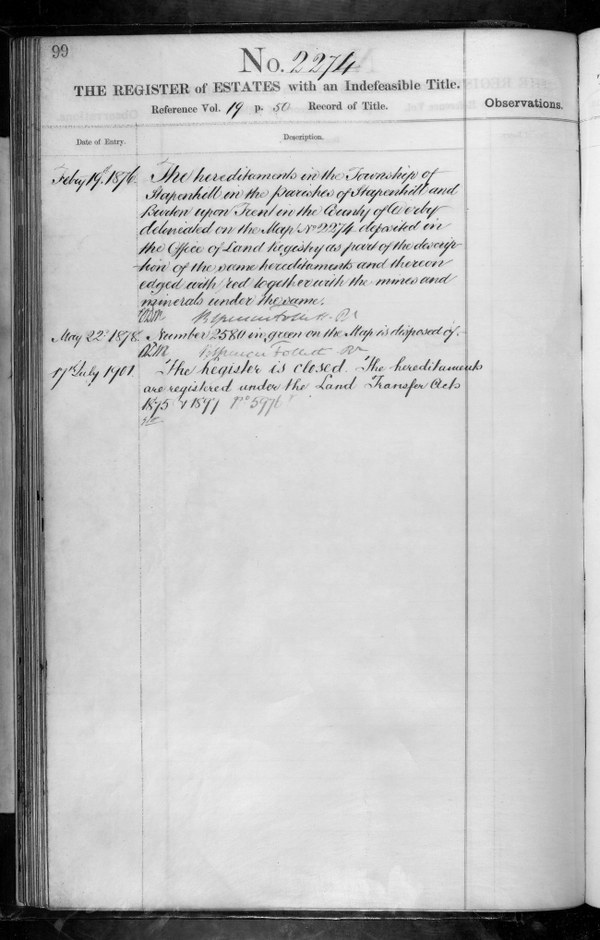 99
No. 2274
THE REGISTER of ESTATES with an Indefeasible Title.
Reference Vol. 19 p. 50 Record of Title.
Observations.
Date of Entry.
Description.
Feby 19th 1876. The hereditaments in the Township of
Stapenhill in the parishes of Stapenhill and
Burton upon Trent in the County of Derby
delineated on the Map No 2274 deposited in
the Office of Land Registry as part of the descrip-
-tion of the same hereditaments and thereon
edged with red together with the mines and
minerals under the same.
B Spencer Follett Rr
May 22d 1878. Number 2580 in green on the Map is disposed of.
B Spencer Follett Rr
17th July 1901 The Register is closed. The hereditaments
are registred under the Land Transfer Acts
1875 & 1897 No 5976